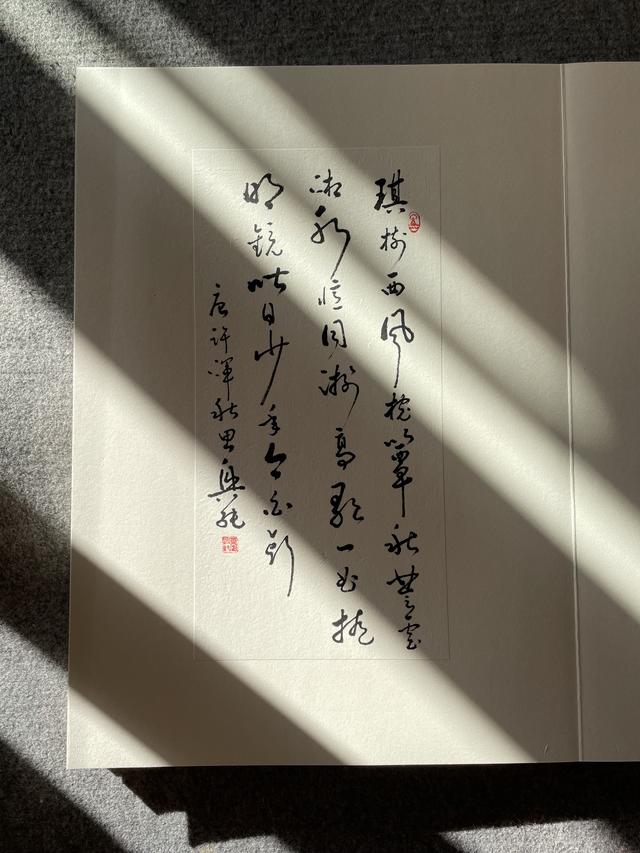 琪樹西風枕簟秋楚雲
湘水憶同游高歌一曲掩
明鏡昨日少年今白頭
唐許渾秋思